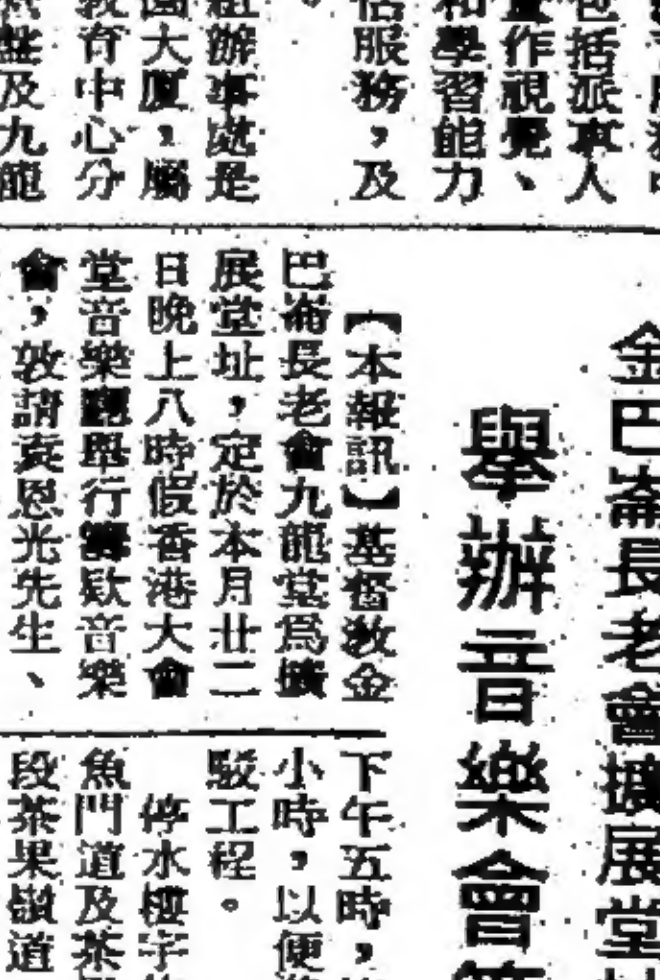 包括派專人
作視覺、
和學習能力
服務，及
組辦事處是
園大厦，屬
教育中心分
及九龍
金巴崙長老會擴展堂
舉辦音樂會
【本報訊】基督教金
巴崙長老會九龍堂爲擴
展堂址，定於本月廿二
日晚上八時假香港大會
堂音樂廳舉行籌欵音樂
會，敦請袁恩光先生、
下午五時，
小時，以便
駁工程。
停水樓宇
魚門道及茶
段茶果嶺道